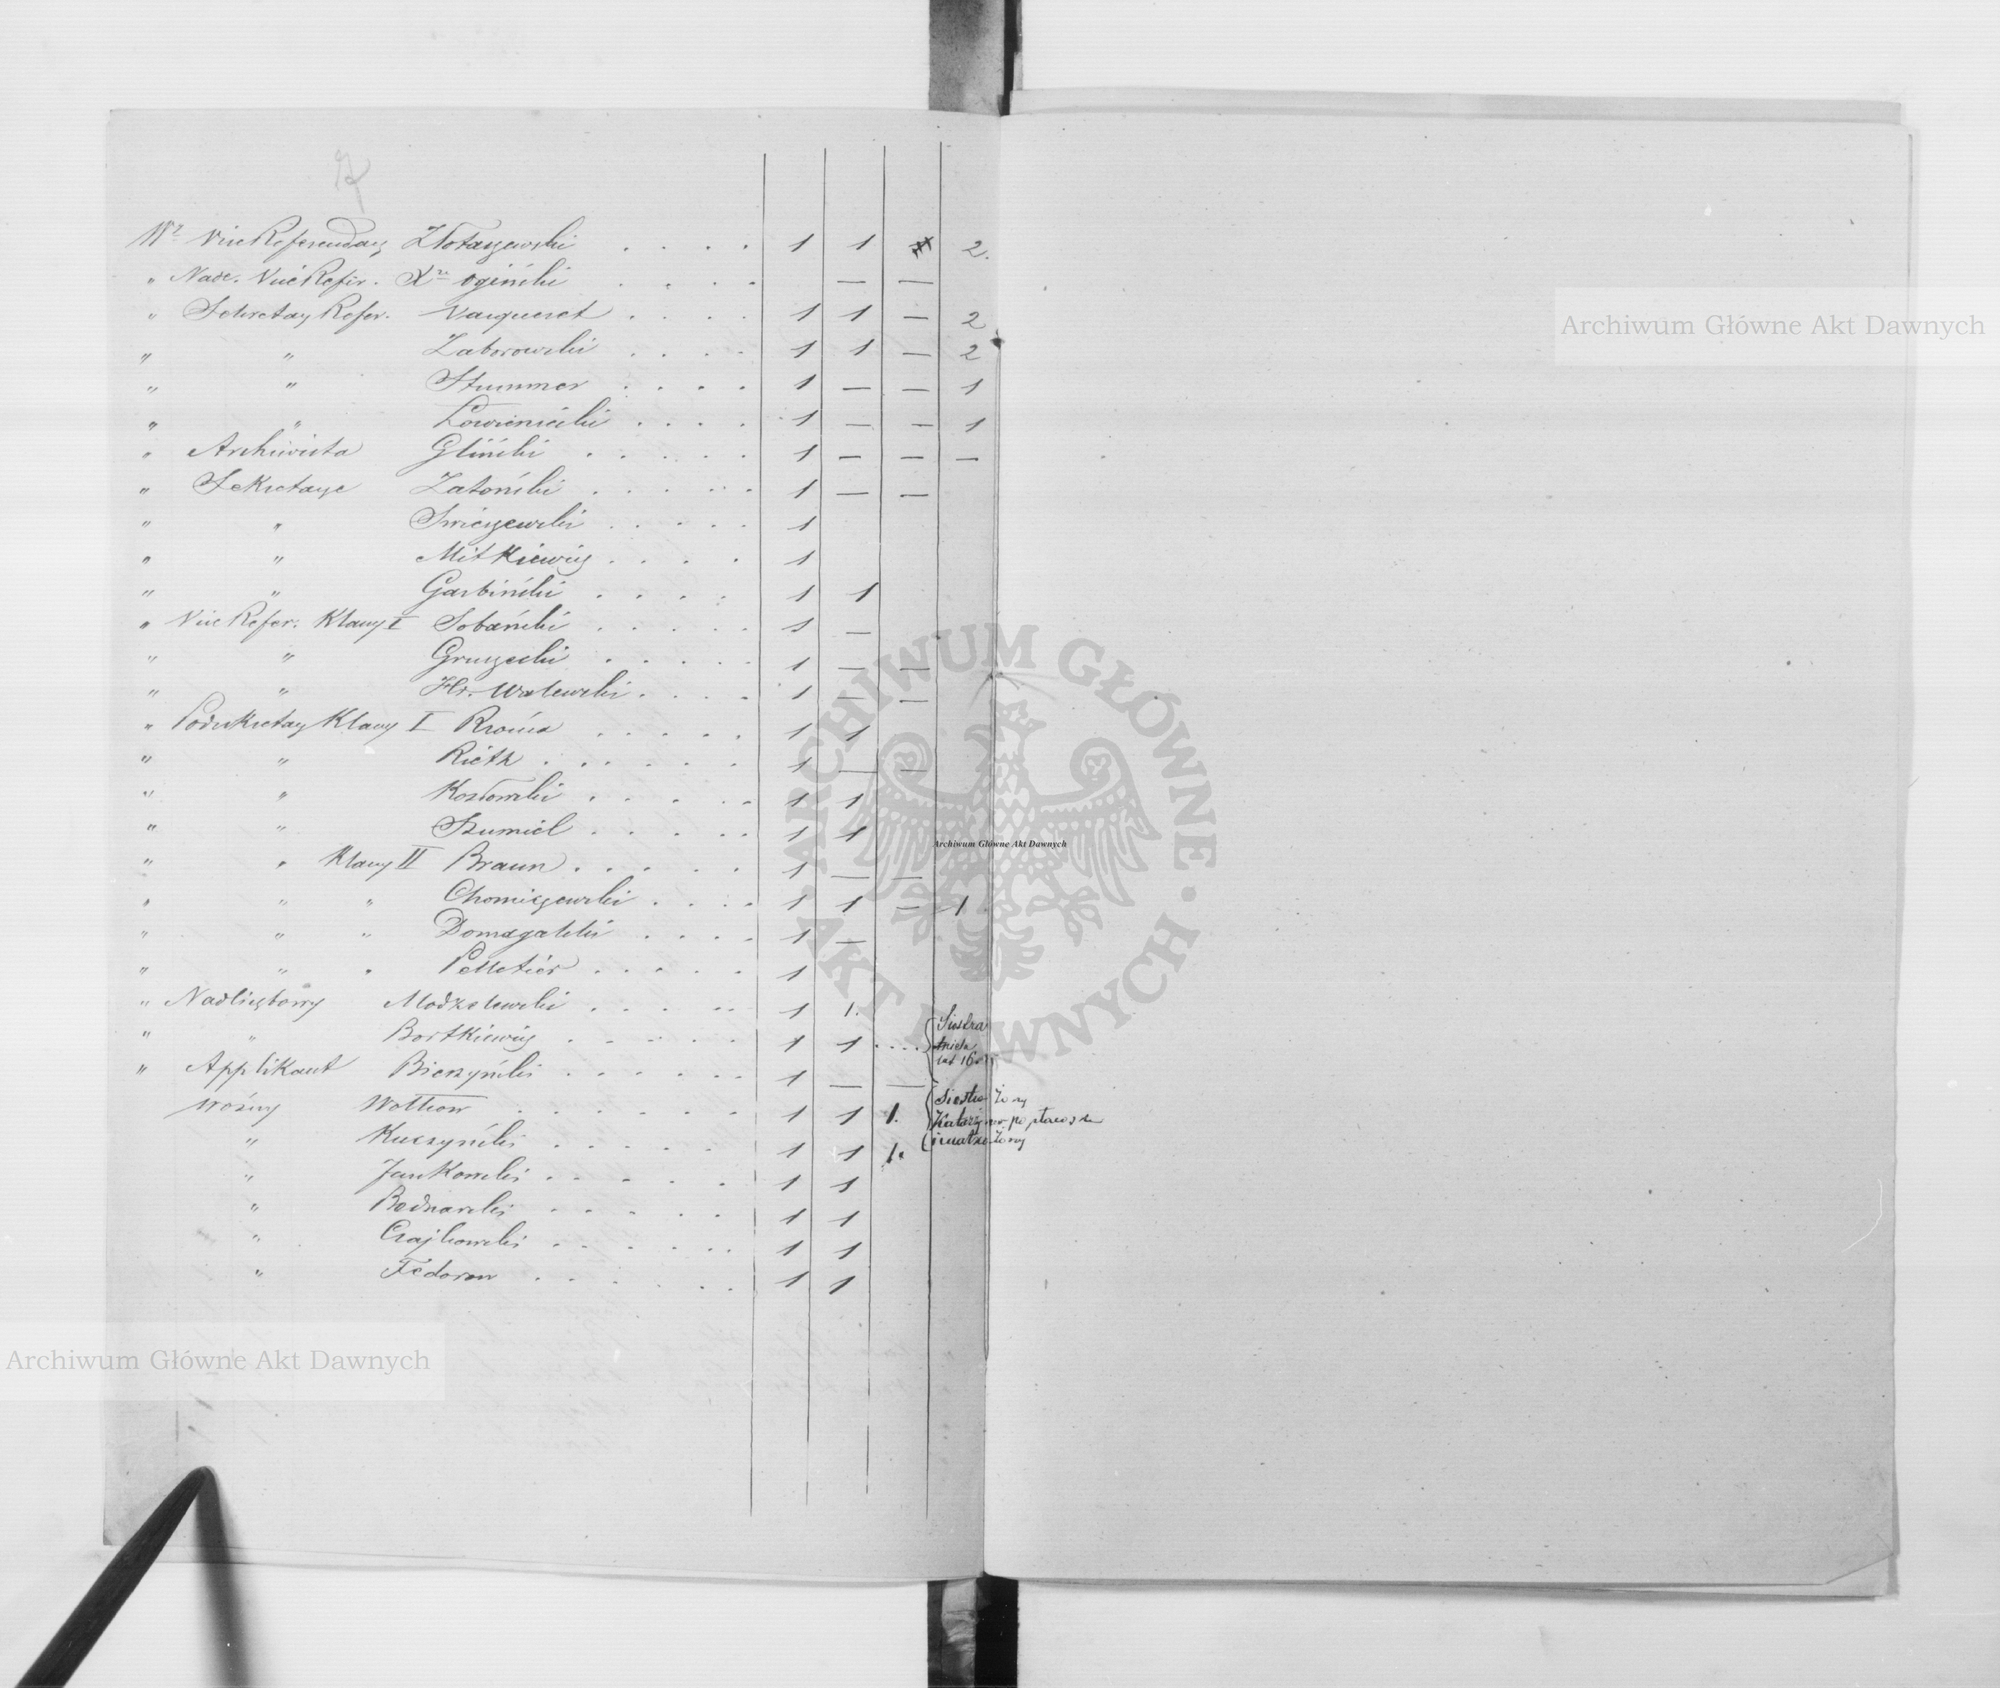 Wz ViceReferendarz Złotarzewski . . . . 1 1 2.
" Nadz. Vice Refer. Xże Ogiński . . . . — —
" Sekretarz Refer. Vauqueret . . . . 1 1 — 2
" " Zaborowski . . . . 1 1 — 2
" " Stummer . . . . 1 — — 1
" " Łowienicki . . . . 1 — — 1
" Archiwista Gliński . . . . . 1 — — —
" Sekretarze Zatoński . . . . . 1 — —
" " Swieżewski . . . . . 1
" " Mitkiewicz . . . . 1
" " Garbiński . . . . 1 1
" Vice Refer. Klassy I Sobański . . . . . 1 —
" " Gruszecki . . . . . 1 — —
" " Hr. Walewski . . . . 1 — —
" Podsekretarz Klassy I . . . . . 1 1
" " Rieth . . . . . . 1 — —
" " Kozłowski . . . . . 1 1
" " Szumiel . . . . . 1 1
" " Klassy II Braun . . . . . 1 — —
" " " Chomiczewski . . . . 1 1 — 1
" " " Domagalski . . . . 1 —
" " " Pelletier . . . . . 1
" Nadliczbowy Modzelewski . . . . . 1 1.
" " Bortkiewicz . . . . . . 1 1 . . . . Siostra
Aniela
lat 16
" Applikant Bierzyński . . . . . . 1 — —
Woźny Wołkow . . . . . . 1 1 1. Siostra Żony
Katarzyna po
" Kuczyński . . . . . . 1 1 1. i matka Żony
" Jankowski . . . . . . 1 1
" Bednarski . . . . . 1 1
" Czajkowski . . . . . . 1 1
" Fedorow . . . . . . 1 1
Archiwum Główne Akt Dawnych
Archiwum Główne Akt Dawnych
ARCHIWUM GŁÓWNE · AKT DAWNYCH ·
Archiwum Główne Akt Dawnych